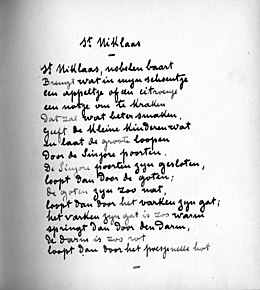 St Niklaas
St Niklaas, nobelen baart
Brengt wat in mijn schoentje
een appeltje of een citroentje
een nootje om te kraken
Dat zal wat beter smaken,
Geeft de kleine kinderen wat
en laat de groote loopen
Door de Sinjore poorten.
de Sinjore poorten zyn gesloten,
loopt dan door de goten;
de goten zyn zoo nat,
loopt dan door het varken zyn gat;
het varken zyn gat is zoo warm
springt dan door den darm,
de darm is zoo rot
loopt dan door het poesjenelle kot